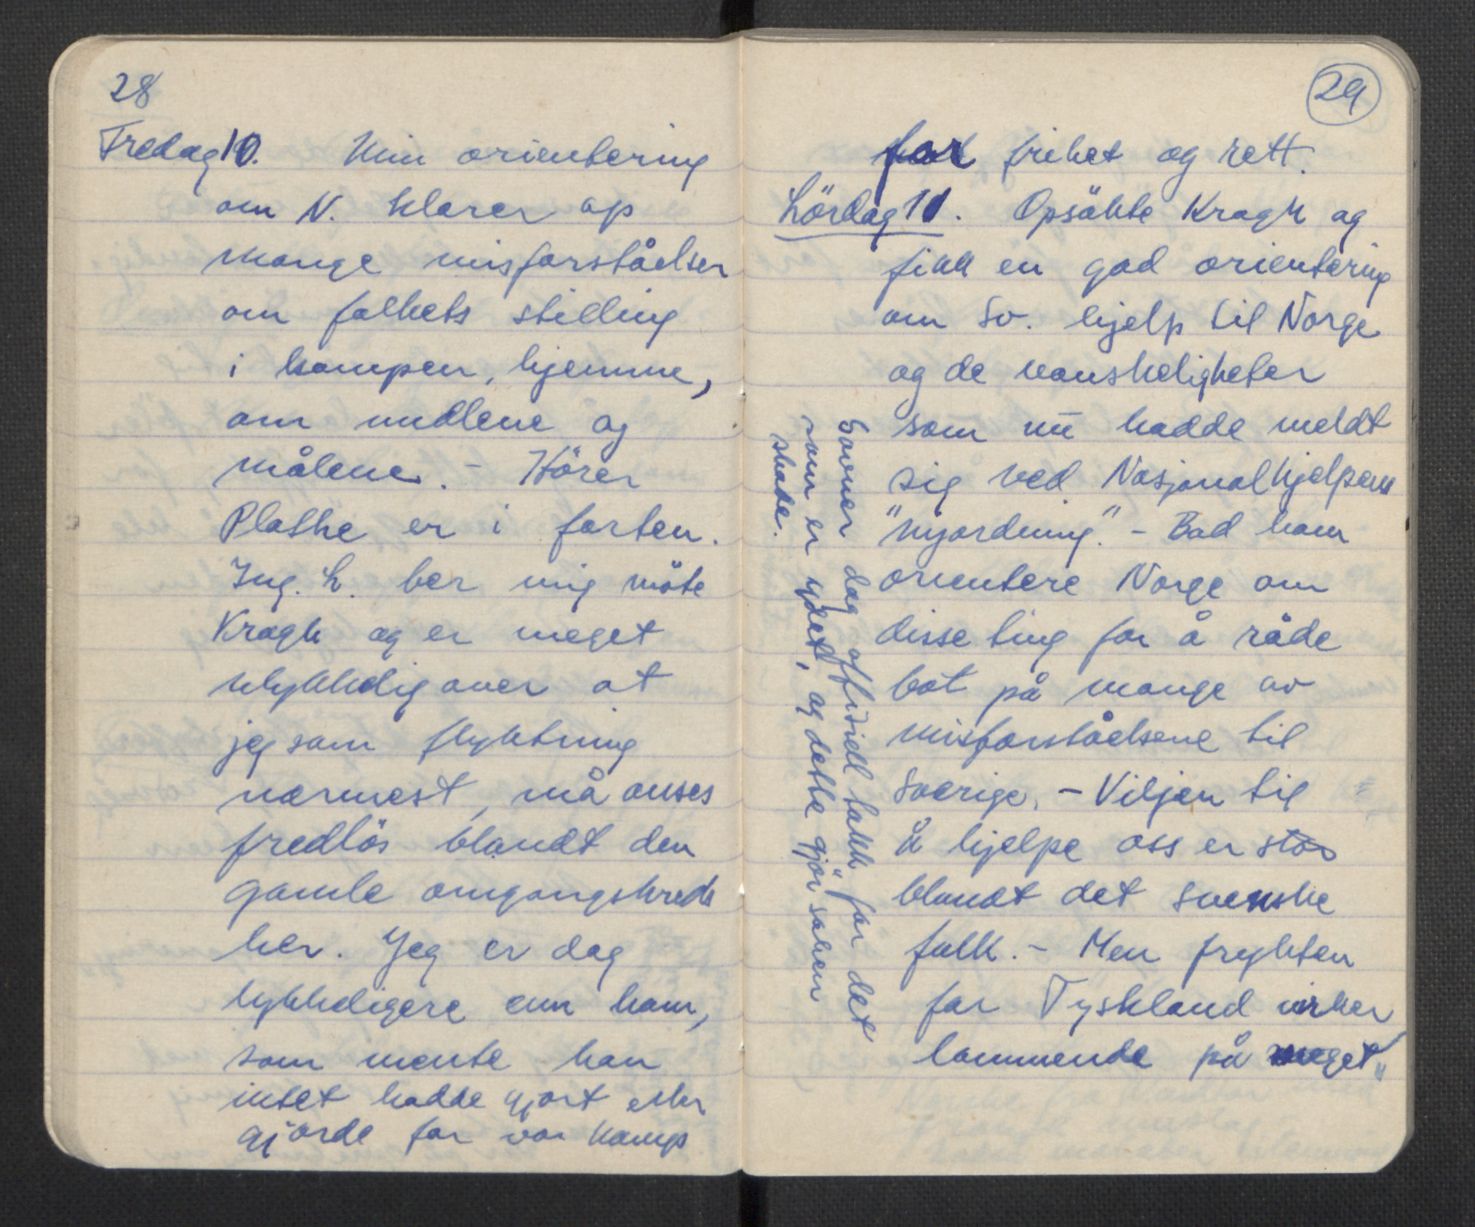 28
Fredag 10. Min orientering
om N. klarer op
mange misforståelser
om folkets stilling
i kampen, hjemme,
om midlene og
målene. - Hörer
Plathe er i farten.
Ing. L. ber mig möte
Kragh og er meget
ulykkelig over at
jeg som flyktning
nærmest, må anses
fredlös blandt den
gamle omgangskreds
her. Jeg er dog
lykkeligere enn ham,
som mente han
intet hadde gjort eller
gjorde for vor kamp
29
for frihet og rett.
Lördag 11. Opsökte Kragh og
fikk en god orientering
om Sv. hjelp til Norge
og de vanskeligheter
som nu hadde meldt
sig ved Nasjonalhjelpens
"nyordning". - Bad ham
orientere Norge om
disse ting for å råde
bot på mange av
misforståelsene til
Sverige. - Viljen til
å hjelpe oss er stor
blandt det svenske
folk. - Men frykten
for Tyskland virker
lammende på meget"
Savner dog offisiell takk for det
som er ydet, og dette gjör saken
skade.